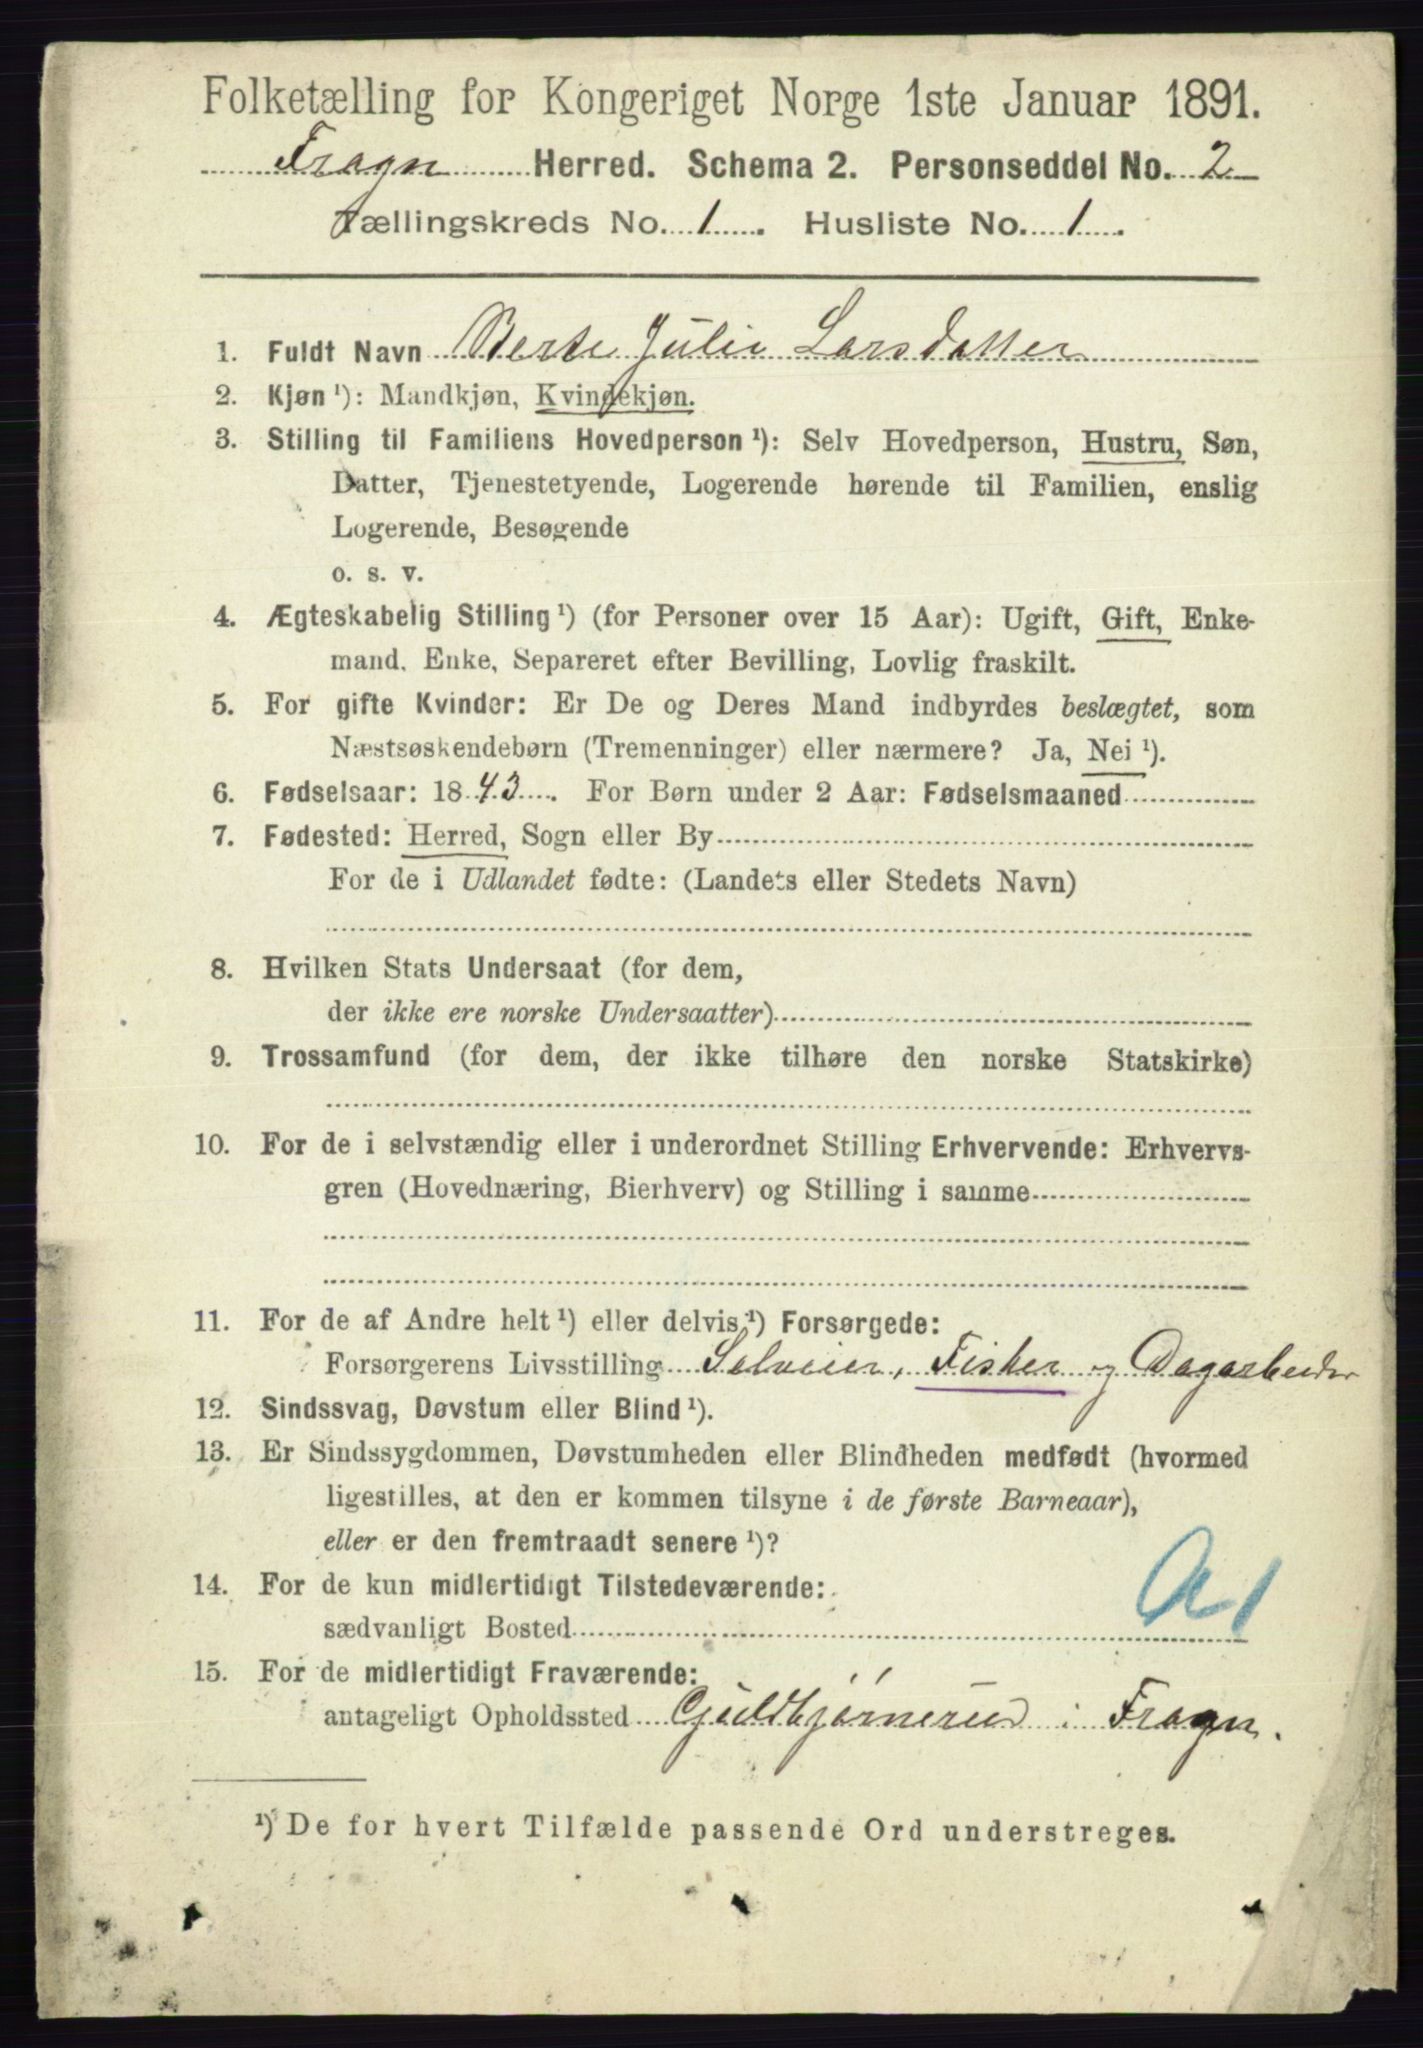 Folketælling for Kongeriget Norge 1ste Januar 1891.
Fragn Herred. Schema 2. Personseddel No. 2
Tællingskreds No. 1. Husliste No. 1.
1. Fuldt Navn Berte Julie Larsdatter
2. Kjøn ¹): Mandkjøn, Kvindekjøn.
3. Stilling til Familiens Hovedperson ¹): Selv Hovedperson, Hustru, Søn,
Datter, Tjenestetyende, Logerende hørende til Familien, enslig
Logerende, Besøgende
o. s. v.
4. Ægteskabelig Stilling ¹) (for Personer over 15 Aar): Ugift, Gift, Enke-
mand, Enke, Separeret efter Bevilling, Lovlig fraskilt.
5. For gifte Kvinder: Er De og Deres Mand indbyrdes beslægtet, som
Næstsøskendebørn (Tremenninger) eller nærmere? Ja, Nei ¹).
6. Fødselsaar: 1843. For Børn under 2 Aar: Fødselsmaaned
7. Fødested: Herred, Sogn eller By
For de i Udlandet fødte: (Landets eller Stedets Navn)
8. Hvilken Stats Undersaat (for dem,
der ikke ere norske Undersaatter)
9. Trossamfund (for dem, der ikke tilhøre den norske Statskirke)
10. For de i selvstændig eller i underordnet Stilling Erhvervende: Erhvervs-
gren (Hovednæring, Bierhverv) og Stilling i samme
11. For de af Andre helt ¹) eller delvis ¹) Forsørgede:
Forsørgerens Livsstilling Selveier, Fisker og Dagarbeider
12. Sindssvag, Døvstum eller Blind ¹).
13. Er Sindssygdommen, Døvstumheden eller Blindheden medfødt (hvormed
ligestilles, at den er kommen tilsyne i de første Barneaar),
eller er den fremtraadt senere ¹)?
14. For de kun midlertidigt Tilstedeværende:
sædvanligt Bosted
15. For de midlertidigt Fraværende:
antageligt Opholdssted Guldbjørnerud i Fragn.
¹) De for hvert Tilfælde passende Ord understreges.